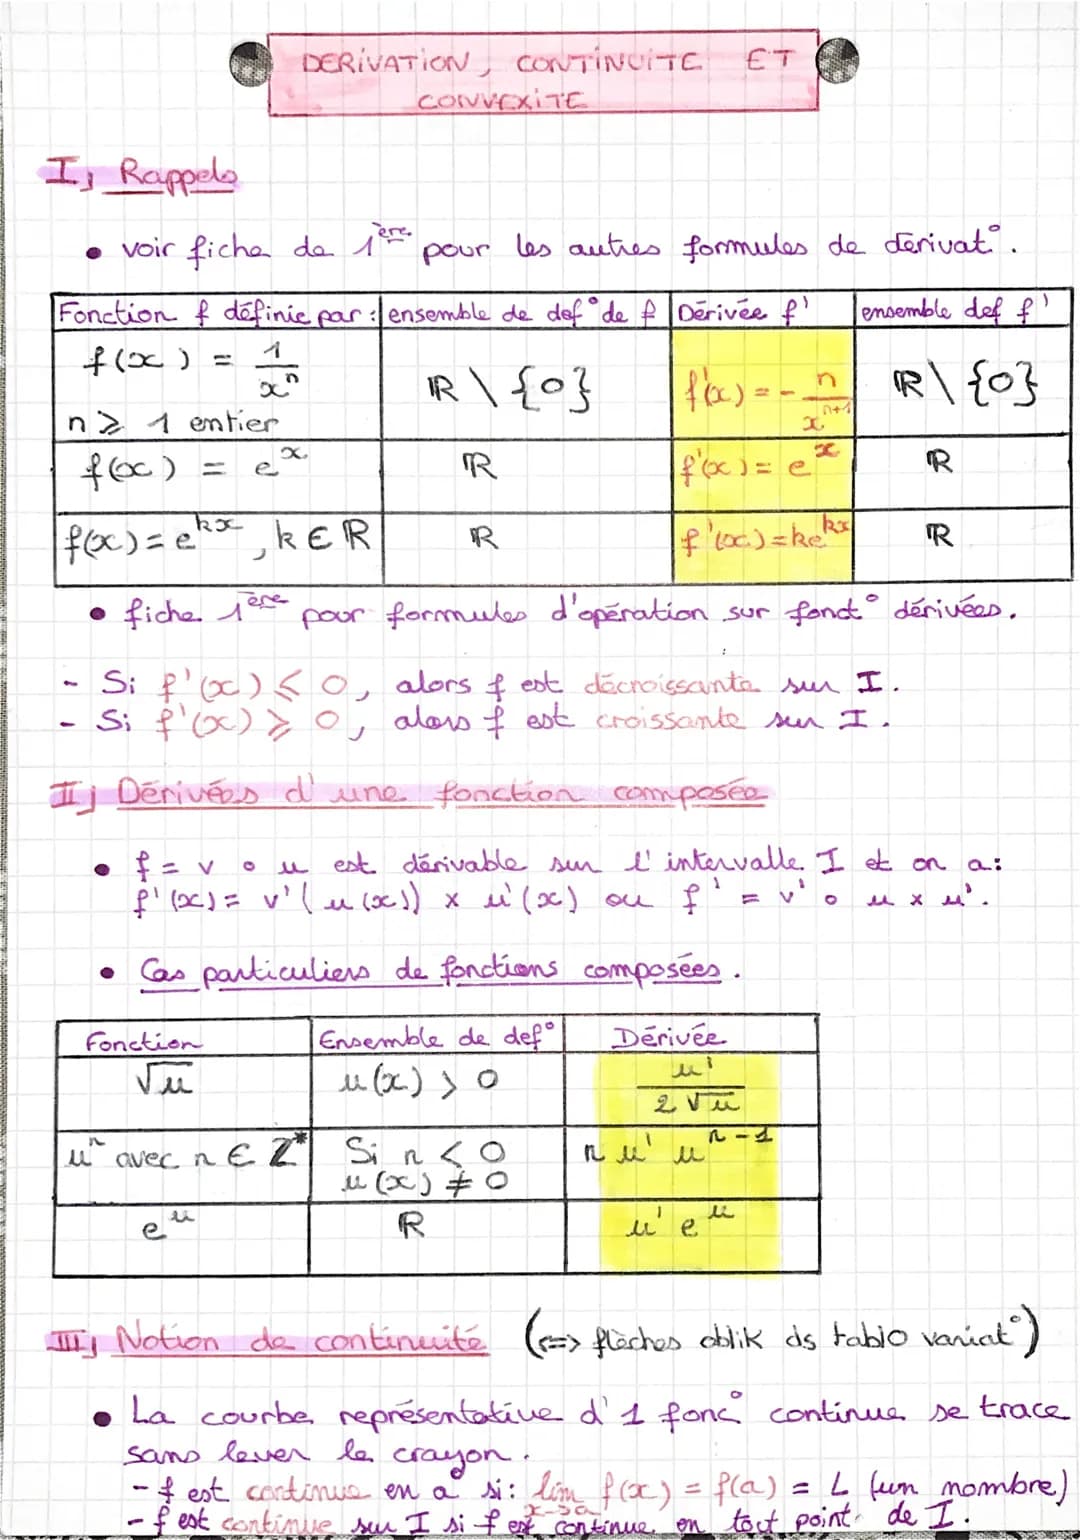 DERIVATION, CONTINUITE ET
CONVEXITE
I, Rappels
• voir fiche de 1ère pour les autres formules de dérivat°.
Fonction f définie par : ensemble de def° de f Dérivée f' ensemble def f'
f(x) = 1/xⁿ
n ≥ 1 entier ℝ \ {0} f'(x) = - n/xⁿ⁺¹ ℝ \ {0}
f(x) = eˣ ℝ f'(x) = eˣ ℝ
f(x) = e^kx, k ∈ ℝ ℝ f'(x) = ke^kx ℝ
• fiche 1ère pour formules d'opération sur fonct° dérivées.
- Si f'(x) ≤ 0, alors f est décroissante sur I.
- Si f'(x) ≥ 0, alors f est croissante sur I.
II, Dérivées d'une fonction composée
• f = v ∘ u est dérivable sur l'intervalle I et on a:
f'(x) = v'(u(x)) × u'(x) ou f' = v' ∘ u × u'.
• Cas particuliers de fonctions composées.
Fonction Ensemble de def° Dérivée
√u u(x) > 0 u'/2√u
uⁿ avec n ∈ ℤ* Si n < 0 n u' uⁿ⁻¹
u(x) ≠ 0
e^u ℝ u' e^u
III, Notion de continuité (<=> flèches oblik ds tablo variat°)
• La courbe représentative d'1 fonc° continue se trace
sans lever le crayon.
- f est continue en a si: lim f(x) = f(a) = L (un nombre)
x->a
- f est continue sur I si f est continue en tout point de I.